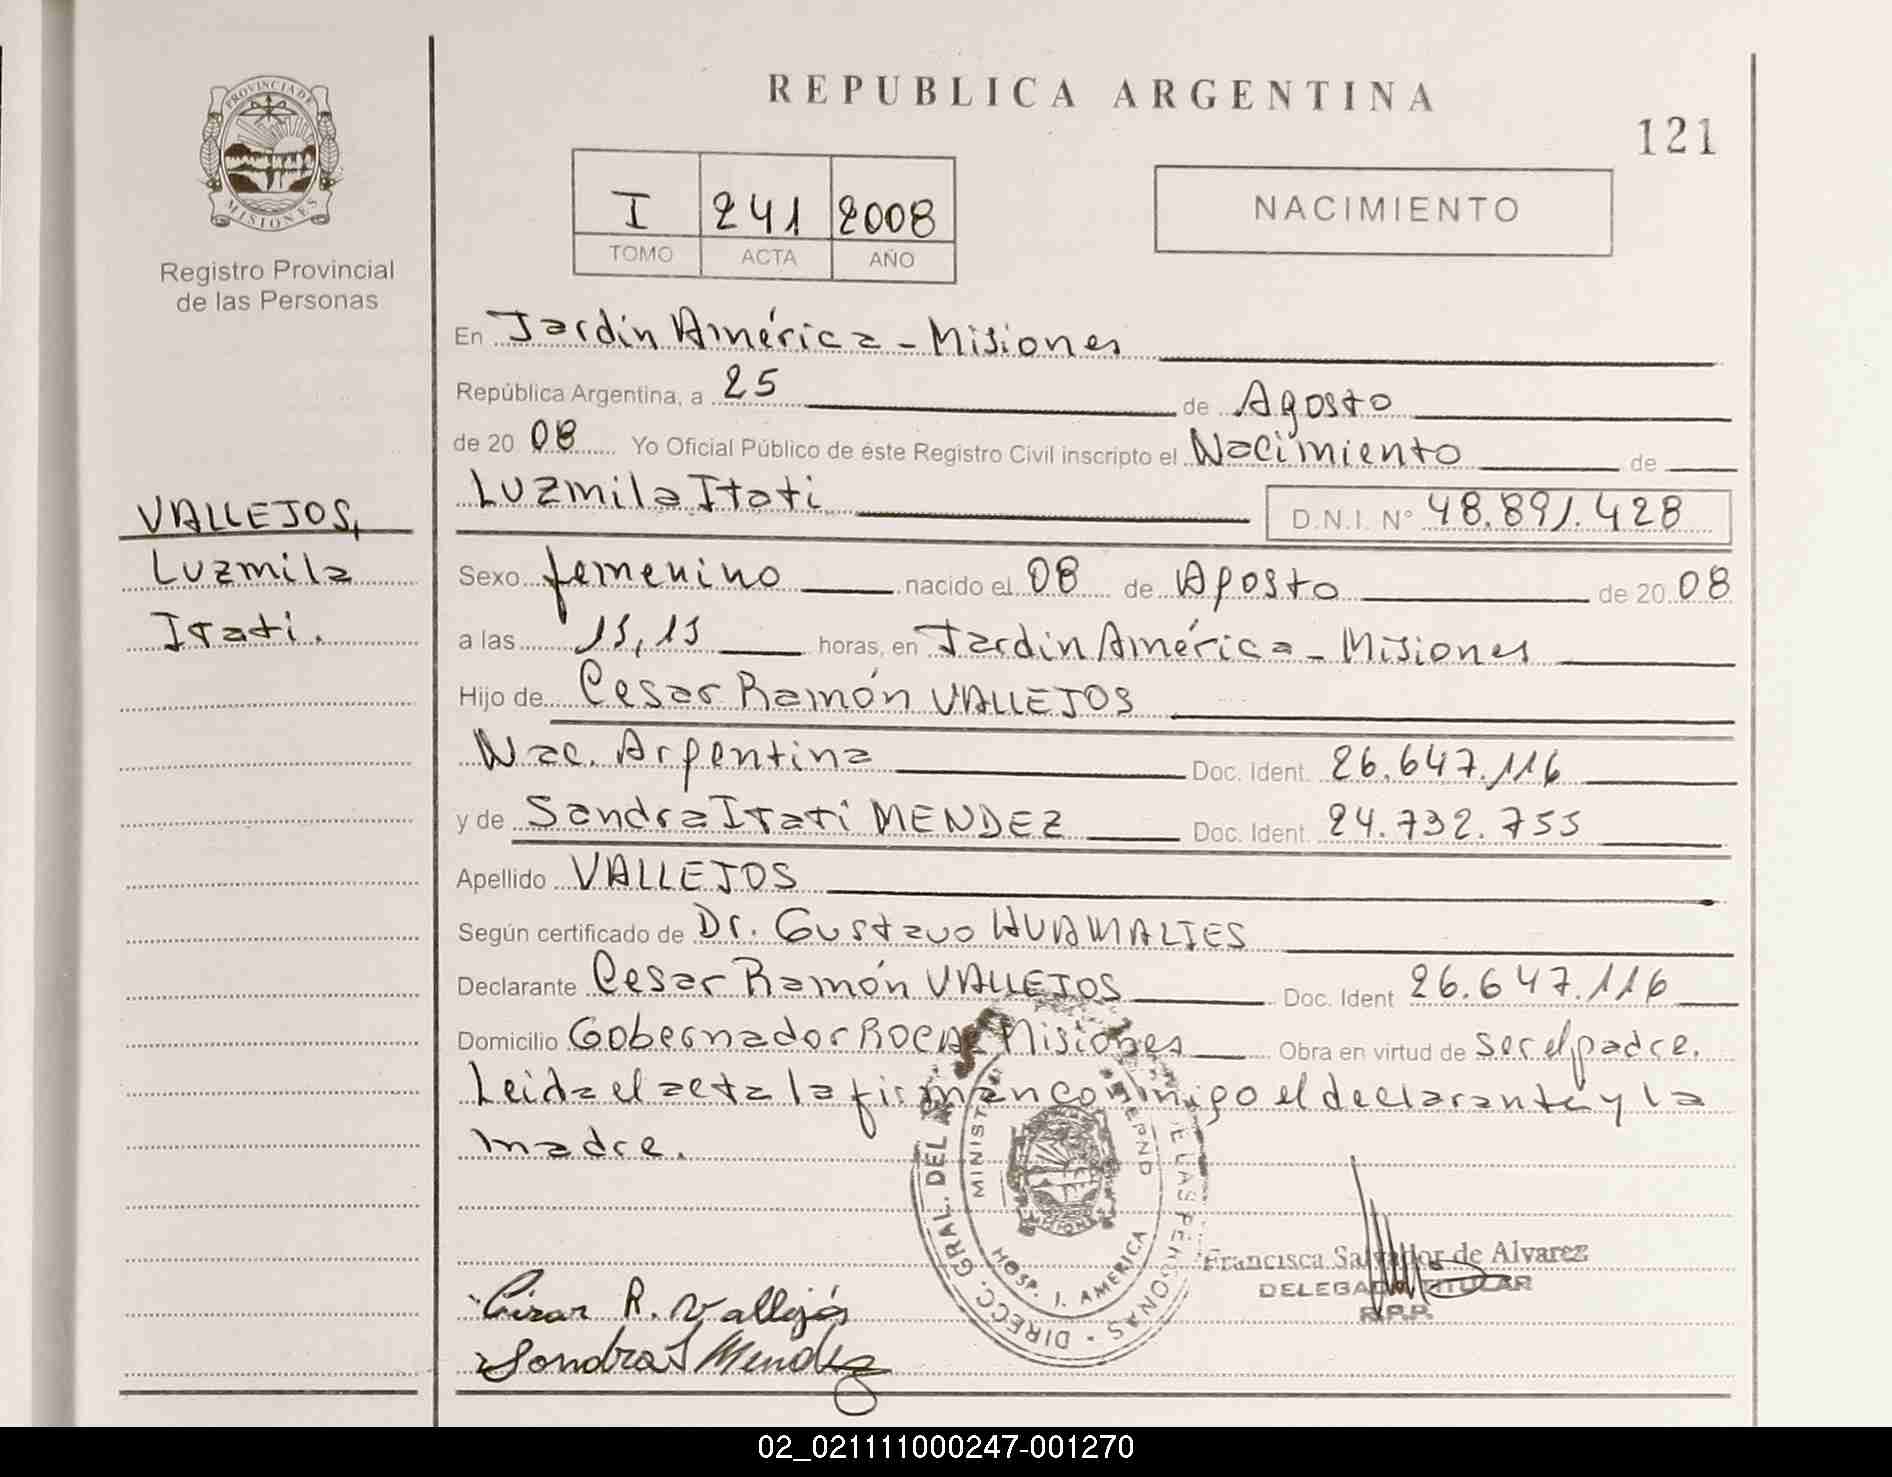 PROVINCIA DE
MISIONES
Registro Provincial
de las Personas
VALLEJOS,
Luzmila
Itati.
REPUBLICA ARGENTINA
121
I 241 2008
TOMO ACTA AÑO
NACIMIENTO
En Jardín América - Misiones
República Argentina, a 25 de Agosto
de 20 08 Yo Oficial Público de éste Registro Civil inscripto el Nacimiento de
Luzmila Itati D.N.I. N° 48.891.428
Sexo femenino nacido el 08 de Agosto de 20 08
a las horas, en Jardín América - Misiones
Hijo de Cesar Ramón VALLEJOS
Nac. Argentina Doc. Ident. 26.647.116
y de Sandra Itati MENDEZ Doc. Ident. 24.732.755
Apellido VALLEJOS
Según certificado de Dr. Gustavo HUAMALIES
Declarante Cesar Ramón VALLEJOS Doc. Ident 26.647.116
Domicilio Gobernador ROCA Misiones Obra en virtud de ser el padre.
Leida el acta la firman conmigo el declarante y la
madre.
DIRECC. GRAL. DEL DE LAS PERSONAS
HOSP. J. AMERICA
Francisca Salvador de Alvarez
DELEGADO TITULAR
R.P.P.
Cesar R. Vallejos
Sandra I Mendez
02_021111000247-001270